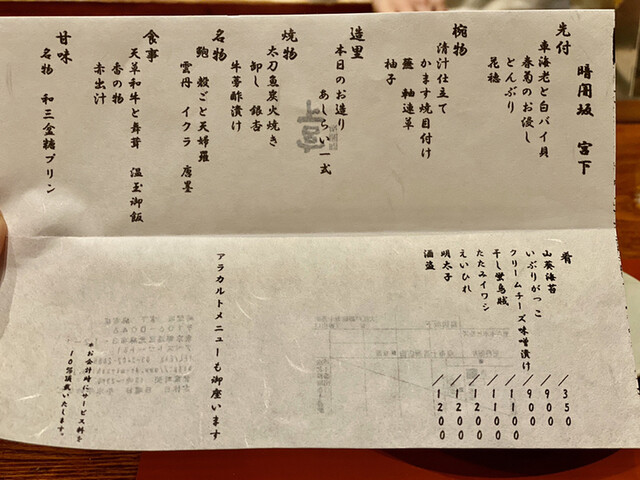 暗闇坂 宮下
先付
車海老と白バイ貝
春菊のお浸し
とんぶり
花穂
椀物
清汁仕立て
かます焼目付け
蕪 軸連草
柚子
造里
本日のお造り
あしらい一式
焼物
太刀魚炭火焼き
卸し 銀杏
牛蒡酢漬け
名物
鮑 殻ごと天婦羅
雲丹 イクラ 唐墨
食事
天草和牛と舞茸 温玉御飯
香の物
赤出汁
甘味
名物 和三盆糖プリン
肴
山葵海苔 / 350
いぶりがっこ / 900
クリームチーズ味噌漬け / 900
干し蛍烏賊 / 1100
たたみイワシ / 1100
えいひれ / 1200
明太子 / 1200
酒盗 / 1200
アラカルトメニューも御座います
*お会計時にサービス料を
10%頂戴いたします。